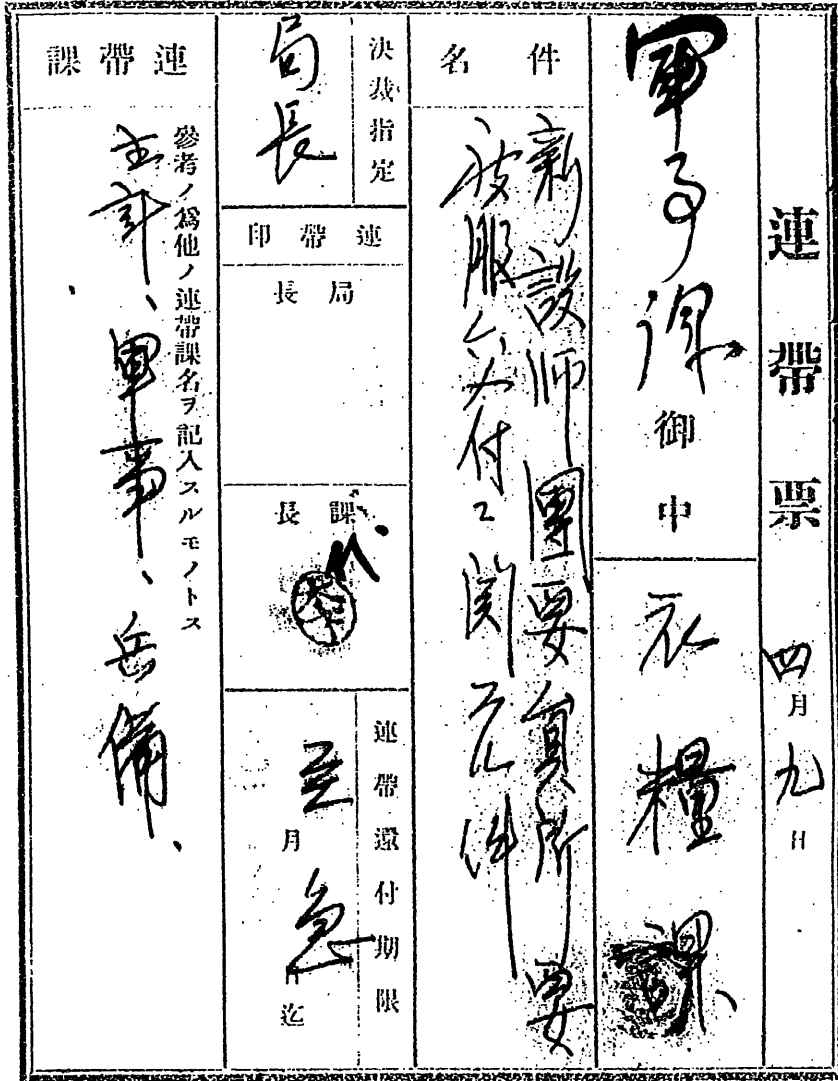 連帶票
四月九日
軍事課御中
衣糧課
件名
新設師團要員所要
被服交付ニ関スル件
決裁指定
局長
連帶印
局長
課長
代
連帶還付期限
至急
月 日迄
連帶課
參考ノ爲他ノ連帶課名ヲ記入スルモノトス
主計、軍事、兵備、